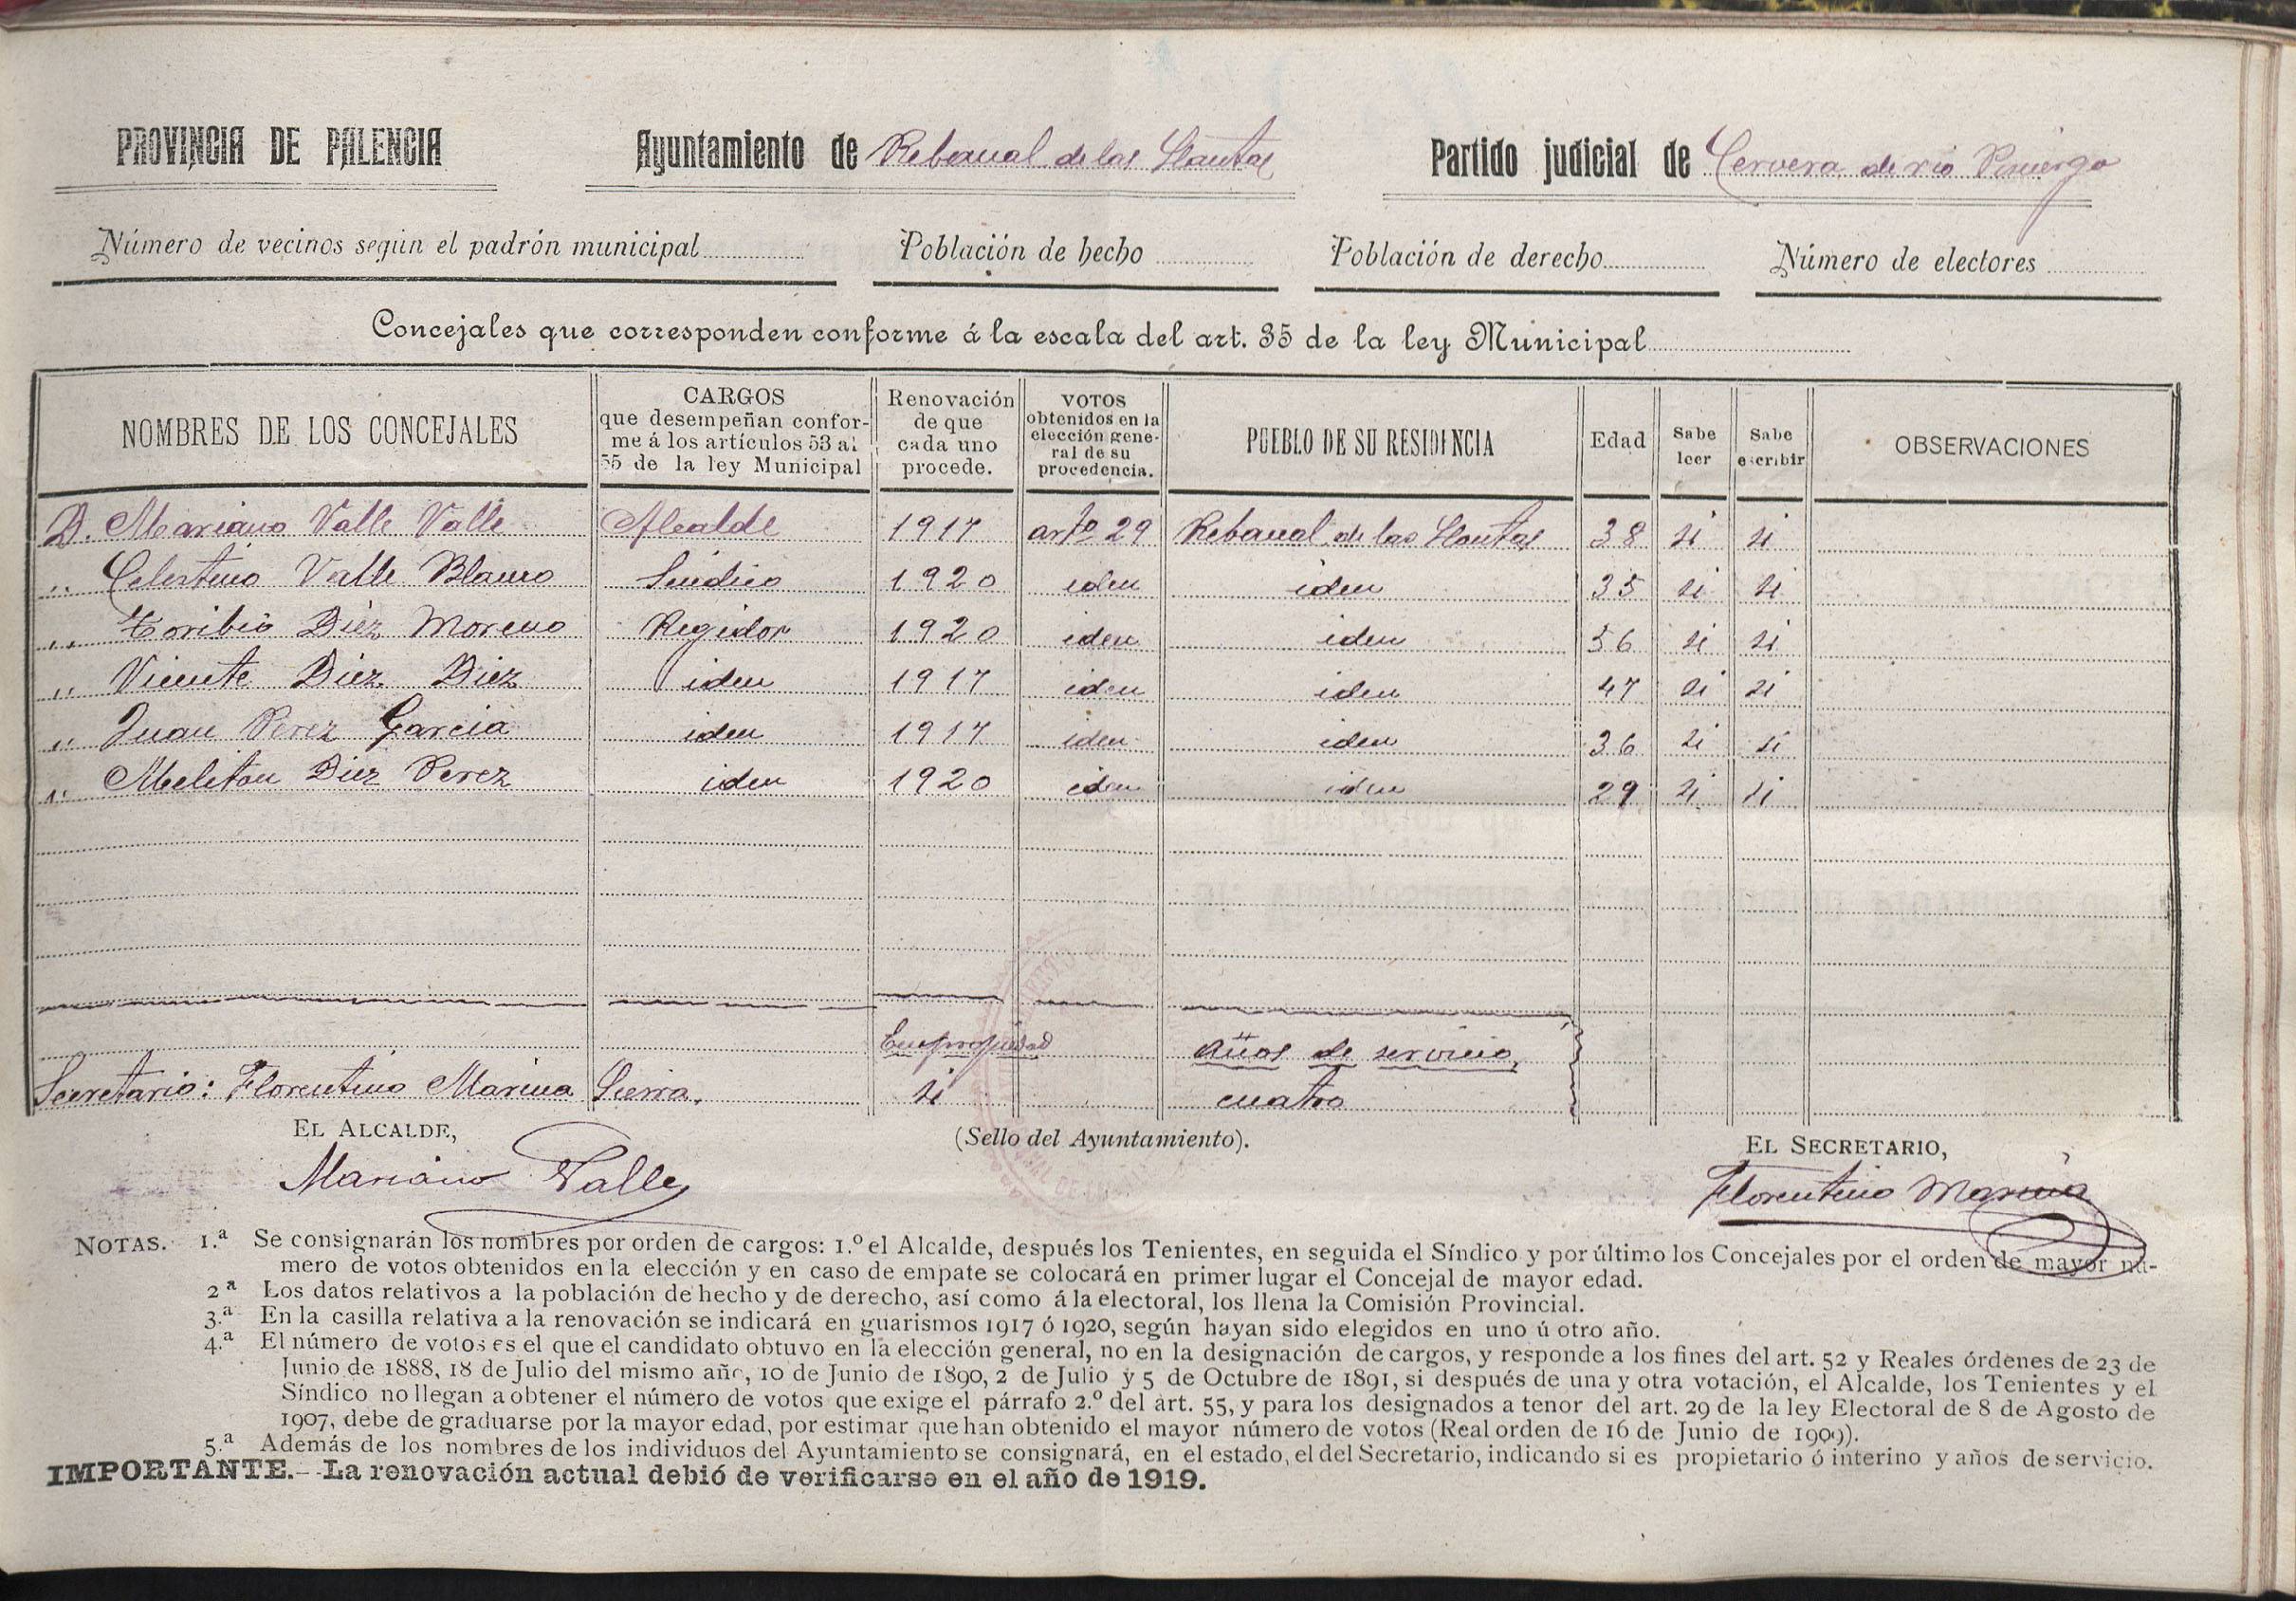 PROVINCIA DE PALENCIA Ayuntamiento de Rebanal de las Llantas Partido judicial de Cervera de rio Pisuerga
Número de vecinos según el padrón municipal Población de hecho Población de derecho Número de electores
Concejales que corresponden conforme á la escala del art. 35 de la ley Municipal
NOMBRES DE LOS CONCEJALES
CARGOS
que desempeñan confor-
me á los artículos 53 al
55 de la ley Municipal
Renovación
de que
cada uno
procede.
VOTOS
obtenidos en la
elección gene-
ral de su
procedencia.
PUEBLO DE SU RESIDENCIA
Edad
Sabe
leer
Sabe
escribir
OBSERVACIONES
D. Mariano Valle Valle Alcalde 1917 artº 29 Rebanal de las Llantas 38 si si
,, Celestino Valle Blanco Sindico 1920 iden iden 35 si si
,, Toribio Diez Moreno Regidor 1920 iden iden 56 si si
,, Vicente Diez Diez iden 1917 iden iden 47 si si
,, Juan Perez Garcia iden 1917 iden iden 36 si si
,, Meliton Diez Perez iden 1920 iden iden 29 si si
En propiedad Años de servicio,
Secretario: Florentino Marina Sierra. si cuatro
EL ALCALDE, (Sello del Ayuntamiento). EL SECRETARIO,
Mariano Valle Florentino Marina
NOTAS. 1.ª Se consignarán los nombres por orden de cargos: 1.º el Alcalde, después los Tenientes, en seguida el Síndico y por último los Concejales por el orden de mayor nú-
mero de votos obtenidos en la elección y en caso de empate se colocará en primer lugar el Concejal de mayor edad.
2ª Los datos relativos a la población de hecho y de derecho, así como á la electoral, los llena la Comisión Provincial.
3.ª En la casilla relativa a la renovación se indicará en guarismos 1917 ó 1920, según hayan sido elegidos en uno ú otro año.
4.ª El número de votos es el que el candidato obtuvo en la elección general, no en la designación de cargos, y responde a los fines del art. 52 y Reales órdenes de 23 de
Junio de 1888, 18 de Julio del mismo año, 10 de Junio de 1890, 2 de Julio y 5 de Octubre de 1891, si después de una y otra votación, el Alcalde, los Tenientes y el
Síndico no llegan a obtener el número de votos que exige el párrafo 2.º del art. 55, y para los designados a tenor del art. 29 de la ley Electoral de 8 de Agosto de
1907, debe de graduarse por la mayor edad, por estimar que han obtenido el mayor número de votos (Real orden de 16 de Junio de 1909).
5.ª Además de los nombres de los individuos del Ayuntamiento se consignará, en el estado, el del Secretario, indicando si es propietario ó interino y años de servicio.
IMPORTANTE.--La renovación actual debió de verificarse en el año de 1919.